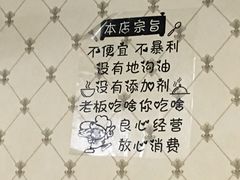 本店宗旨
不便宜 不暴利
没有地沟油
没有添加剂
老板吃啥你吃啥
良心经营
放心消费